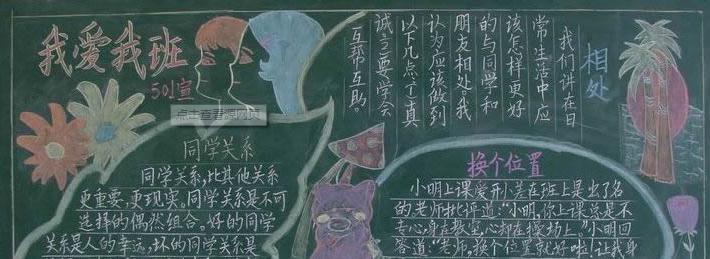 我爱我班
501宣
点击查看源网页
同学关系
同学关系,比其他关系
更重要,更现实。同学关系是不可
选择的偶然组合。好的同学
关系是人的幸运,坏的同学关系是
相处
我们讲在日
常生活中应
该怎样更好
的与同学和
朋友相处。我
认为应该做到
以下几点 真
诚 要学会
互帮互助。
换个位置
小明上课爱开小差在班上是出了名
的.老师批评道:“小明,你上课总是不
专心,身在教室,心却在操场上。”小明回
答道:“老师,换个位置就好啦!让我身